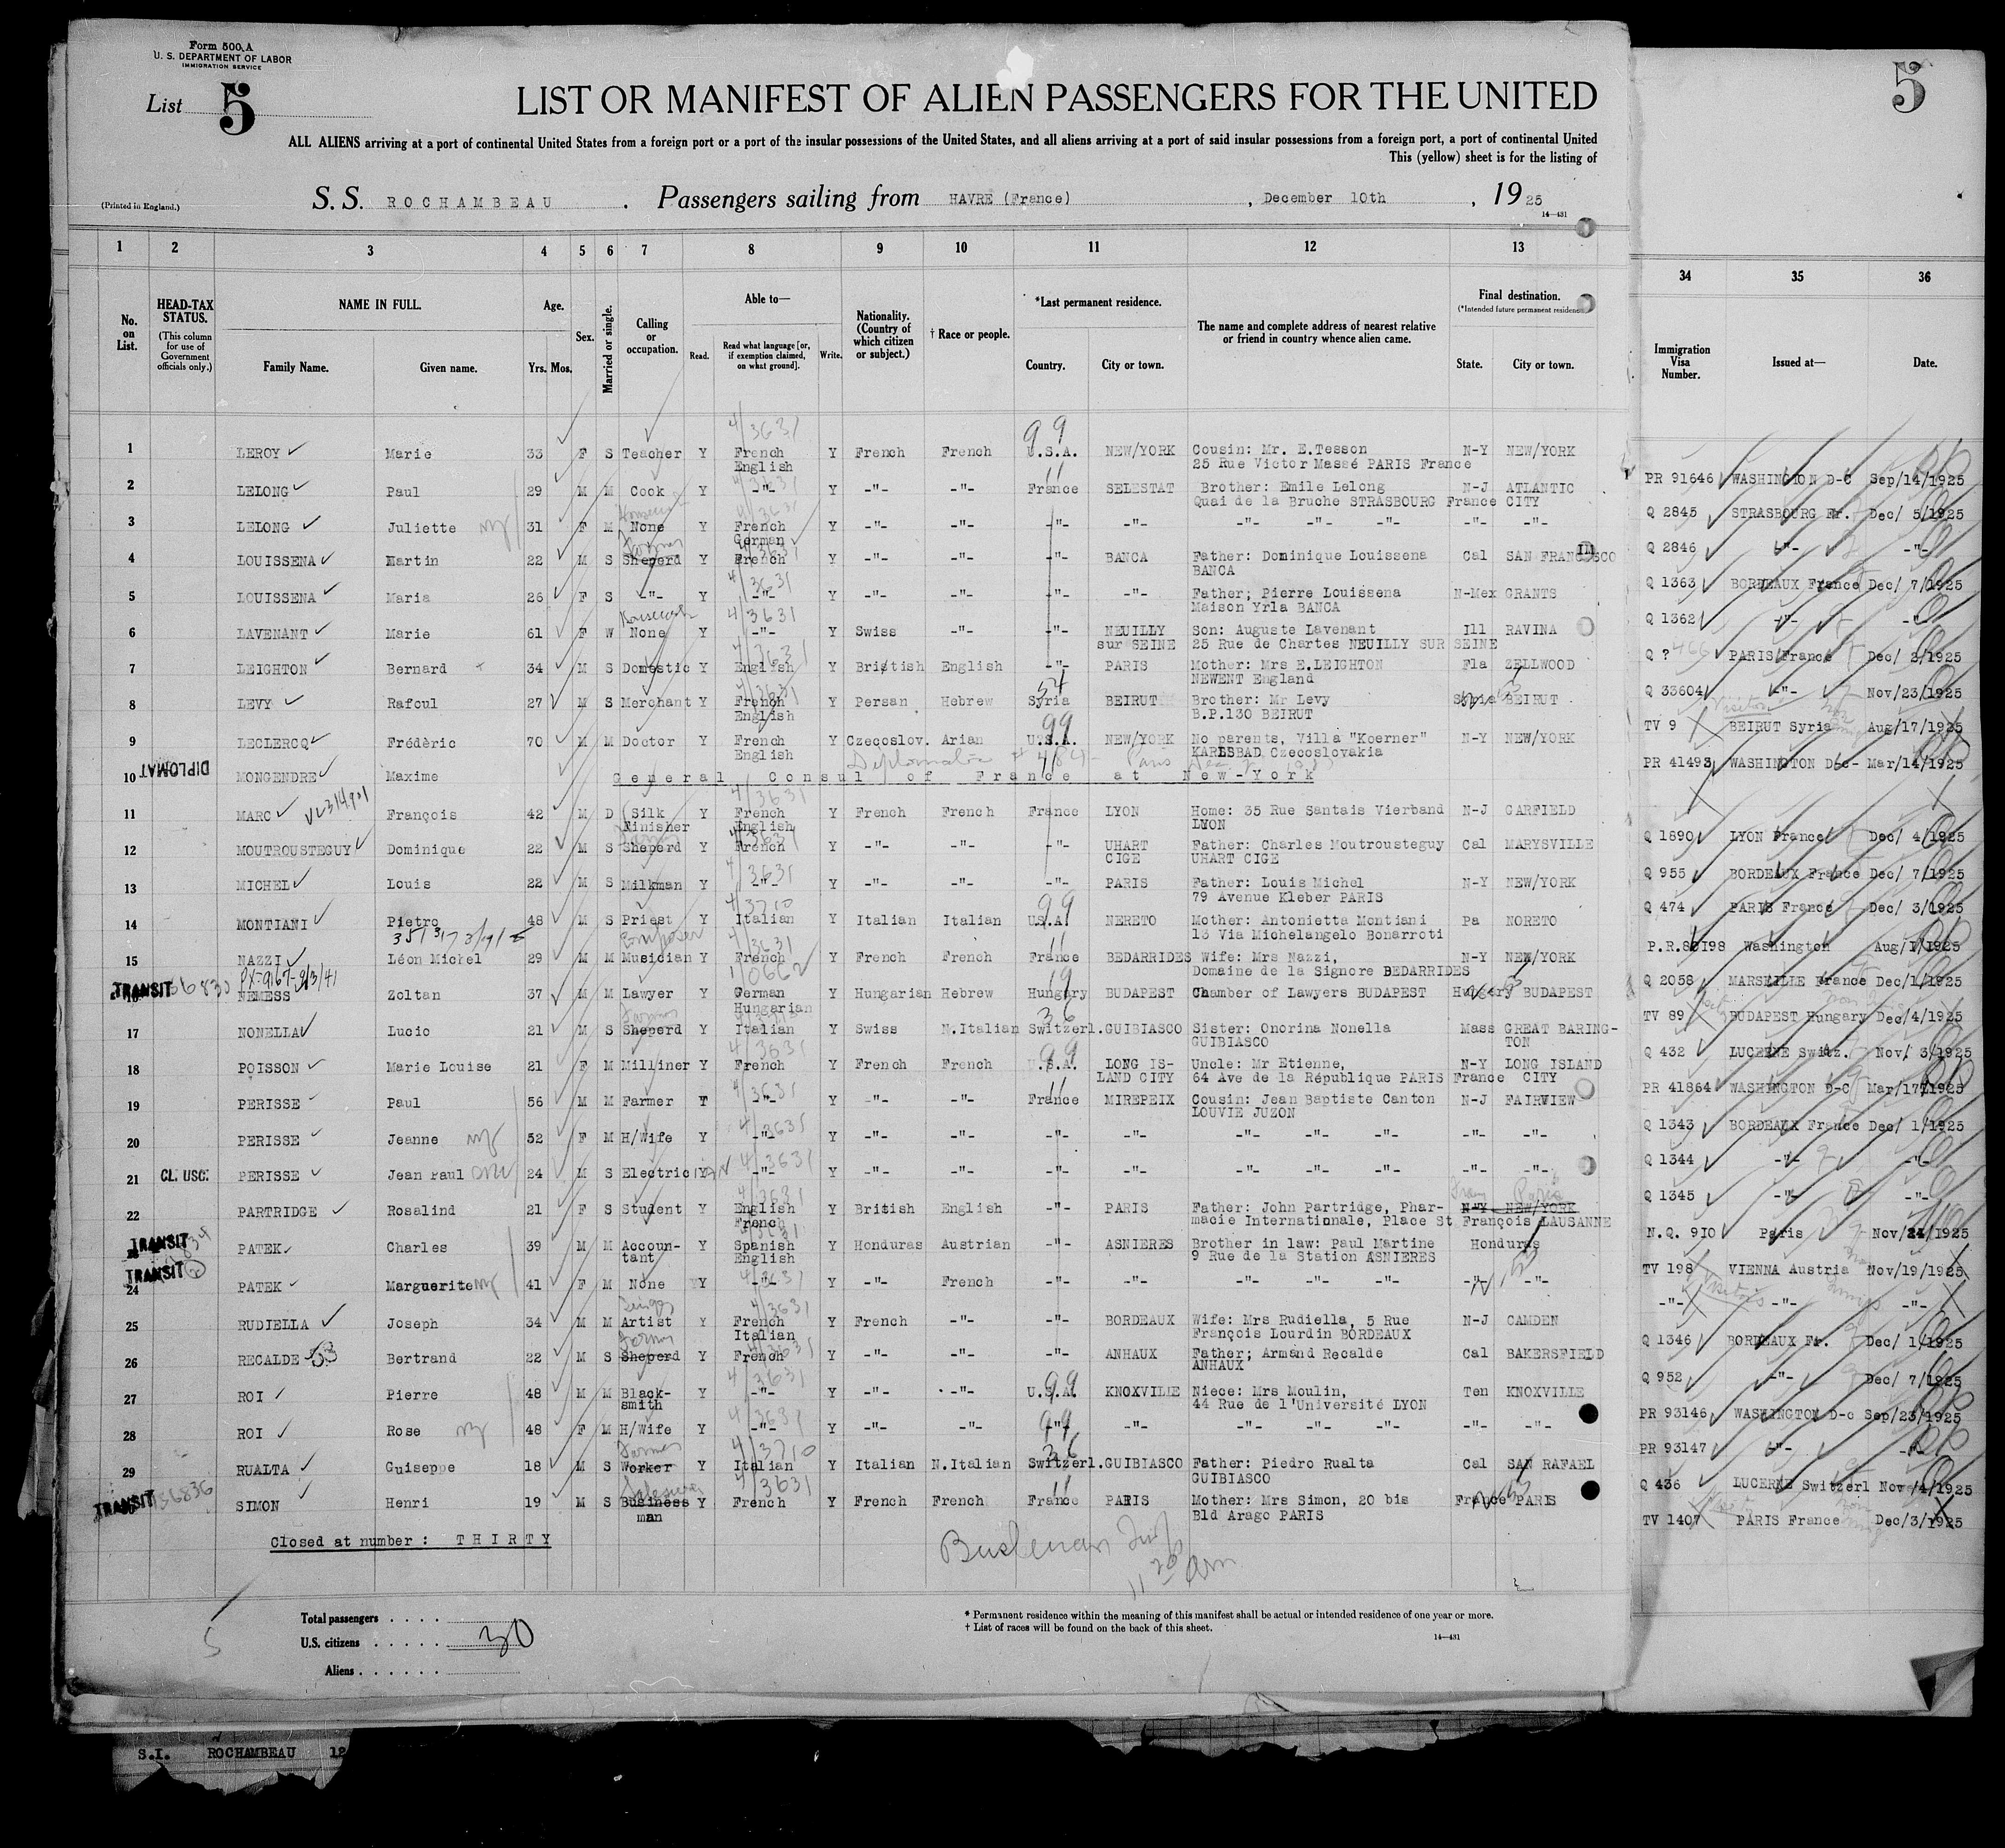 Form 500 A
U. S. DEPARTMENT OF LABOR
IMMIGRATION SERVICE
List 5
LIST OR MANIFEST OF ALIEN PASSENGERS FOR THE UNITED
ALL ALIENS arriving at a port of continental United States from a foreign port or a port of the insular possessions of the United States, and all aliens arriving at a port of said insular possessions from a foreign port, a port of continental United
This (yellow) sheet is for the listing of
(Printed in England.)
S. S. ROCHAMBEAU . Passengers sailing from HAVRE (France) , December 10th , 1925
14—431
5
1 2 3 4 5 6 7 8 9 10 11 12 13 34 35 36
No. on List.
HEAD-TAX STATUS.
(This column for use of Government officials only.)
NAME IN FULL.
Family Name. Given name.
Age.
Yrs. Mos.
Sex.
Married or single.
Calling or occupation.
Able to—
Read. Read what language [or, if exemption claimed, on what ground]. Write.
Nationality. (Country of which citizen or subject.)
† Race or people.
*Last permanent residence.
Country. City or town.
The name and complete address of nearest relative or friend in country whence alien came.
Final destination.
(*Intended future permanent residence
State. City or town.
Immigration Visa Number.
Issued at—
Date.
1 LEROY Marie 33 F S Teacher Y French Y French French U.S.A. NEW/YORK Cousin: Mr. E.Tesson N-Y NEW/YORK
English 25 Rue Victor Massé PARIS France
PR 91646 WASHINGTON D-C Sep/14/1925
2 LELONG Paul 29 M M Cook Y -"- Y -"- -"- France SELESTAT Brother: Emile Lelong N-J ATLANTIC
Quai de la Bruche STRASBOURG France CITY
Q 2845 STRASBOURG Fr. Dec/ 5/1925
3 LELONG Juliette 31 F M None Y French Y -"- -"- -"- -"- -"- -"- -"- -"- -"-
German
Q 2846 -"- -"-
4 LOUISSENA Martin 22 M S Sheperd Y French Y -"- -"- -"- BANCA Father: Dominique Louissena Cal SAN FRANCISCO
BANCA
Q 1363 BORDEAUX France Dec/ 7/1925
5 LOUISSENA Maria 26 F S -"- Y -"- Y -"- -"- -"- -"- Father; Pierre Louissena N-Mex GRANTS
Maison Yrla BANCA
Q 1362 -"- -"-
6 LAVENANT Marie 61 F W None Y -"- Y Swiss -"- -"- NEUILLY Son: Auguste Lavenant Ill RAVINA
sur SEINE 25 Rue de Chartes NEUILLY SUR SEINE
Q ? 466 PARIS/France Dec/ 2/1925
7 LEIGHTON Bernard 34 M S Domestic Y English Y Bristish English -"- PARIS Mother: Mrs E.LEIGHTON Fla ZELLWOOD
NEWENT England
Q 33604 -"- Nov/23/1925
8 LEVY Rafoul 27 M S Merchant Y French Y Persan Hebrew Syria BEIRUT Brother: Mr Levy Syria BEIRUT
English B.P.130 BEIRUT
TV 9 BEIRUT Syria Aug/17/1925
9 LECLERCQ Frédèric 70 M M Doctor Y French Y Czecoslov. Arian U.S.A. NEW/YORK No parents, Villa "Koerner" N-Y NEW/YORK
English KARLSBAD Czecoslovakia
PR 41493 WASHINGTON D-c- Mar/14/1925
DIPLOMAT
10 MONGENDRE Maxime General Consul of France at New-York
11 MARC François 42 M D Silk Y French Y French French France LYON Home: 35 Rue Santais Vierband N-J GARFIELD
Finisher English LYON
Q 1890 LYON France Dec/ 4/1925
12 MOUTROUSTEGUY Dominique 22 M S Sheperd Y French Y -"- -"- -"- UHART Father: Charles Moutrousteguy Cal MARYSVILLE
CIGE UHART CIGE
Q 955 BORDEAUX France Dec/ 7/1925
13 MICHEL Louis 22 M S Milkman Y -"- Y -"- -"- -"- PARIS Father: Louis Michel N-Y NEW/YORK
79 Avenue Kleber PARIS
Q 474 PARIS France Dec/ 3/1925
14 MONTIANI Pietro 48 M S Priest Y Italian Y Italian Italian U.S.A. NERETO Mother: Antonietta Montiani Pa NORETO
13 Via Michelangelo Bonarroti
P.R.80198 Washington Aug/1/1925
15 NAZZI Léon Michel 29 M M Musician Y French Y French French France BEDARRIDES Wife: Mrs Nazzi, N-Y NEW/YORK
Domaine de la Signore BEDARRIDES
Q 2058 MARSEILLE France Dec/1/1925
TRANSIT
NEMESS Zoltan 37 M M Lawyer Y German Y Hungarian Hebrew Hungary BUDAPEST Chamber of Lawyers BUDAPEST Hungary BUDAPEST
Hungarian
TV 89 BUDAPEST Hungary Dec/4/1925
17 NONELLA Lucio 21 M S Sheperd Y Italian Y Swiss N.Italian Switzerl. GUIBIASCO Sister: Onorina Nonella Mass GREAT BARING-
GUIBIASCO TON
Q 432 LUCERNE Switz. Nov/ 3/1925
18 POISSON Marie Louise 21 F M Milliner Y French Y French French U.S.A. LONG IS- Uncle: Mr Etienne, N-Y LONG ISLAND
LAND CITY 64 Ave de la République PARIS France CITY
PR 41864 WASHINGTON D-C Mar/17/1925
19 PERISSE Paul 56 M M Farmer Y -"- Y -"- -"- France MIREPEIX Cousin: Jean Baptiste Canton N-J FAIRVIEW
LOUVIE JUZON
Q 1343 BORDEAUX France Dec/ 1/1925
20 PERISSE Jeanne 52 F M H/Wife Y -"- Y -"- -"- -"- -"- -"- -"- -"- -"- -"- -"-
Q 1344 -"- -"-
21 CL. USC. PERISSE Jean Paul 24 M S Electrician Y -"- Y -"- -"- -"- -"- -"- -"- -"- -"- -"- -"-
Q 1345 -"- -"-
22 PARTRIDGE Rosalind 21 F S Student Y English Y British English -"- PARIS Father: John Partridge, Phar- N-Y NEW/YORK
French macie Internationale, Place St François LAUSANNE
N.Q. 910 Paris Nov/24/1925
TRANSIT
PATEK Charles 39 M M Accoun- Y Spanish Y Honduras Austrian -"- ASNIERES Brother in law: Paul Martine Honduras
tant English 9 Rue de la Station ASNIERES
TV 198 VIENNA Austria Nov/19/1925
TRANSIT
24 PATEK Marguerite 41 F M None Y -"- Y -"- French -"- -"- -"- -"- -"- -"- -"- -"-
-"- -"- -"-
25 RUDIELLA Joseph 34 M M Artist Y French Y French -"- BORDEAUX Wife: Mrs Rudiella, 5 Rue N-J CAMDEN
Italian François Lourdin BORDEAUX
Q 1346 BORDEAUX Fr. Dec/ 1/1925
26 RECALDE Bertrand 22 M S Sheperd Y French Y -"- -"- ANHAUX Father; Armand Recalde Cal BAKERSFIELD
ANHAUX
Q 952 -"- Dec/ 7/1925
27 ROI Pierre 48 M M Black- Y -"- Y -"- -"- U.S.A. KNOXVILLE Niece: Mrs Moulin, Ten KNOXVILLE
smith 44 Rue de l'Université LYON
PR 93146 WASHINGTON D-c Sep/23/1925
28 ROI Rose 48 F M H/Wife Y -"- Y -"- -"- -"- -"- -"- -"- -"- -"- -"- -"-
PR 93147 -"- -"-
29 RUALTA Guiseppe 18 M S Worker Y Italian Y Italian N.Italian Switzerl. GUIBIASCO Father: Piedro Rualta Cal SAN RAFAEL
GUIBIASCO
Q 436 LUCERNE Switzerl Nov/4/1925
TRANSIT
SIMON Henri 19 M S Business Y French Y French French France PARIS Mother: Mrs Simon, 20 bis France PARIS
man Bld Arago PARIS
TV 1407 PARIS France Dec/3/1925
Closed at number : THIRTY
11 20 am
Total passengers . . . .
U.S. citizens . . . . . 30
Aliens . . . . . .
* Permanent residence within the meaning of this manifest shall be actual or intended residence of one year or more.
† List of races will be found on the back of this sheet.
14—431
5
S.I. ROCHAMBEAU 12